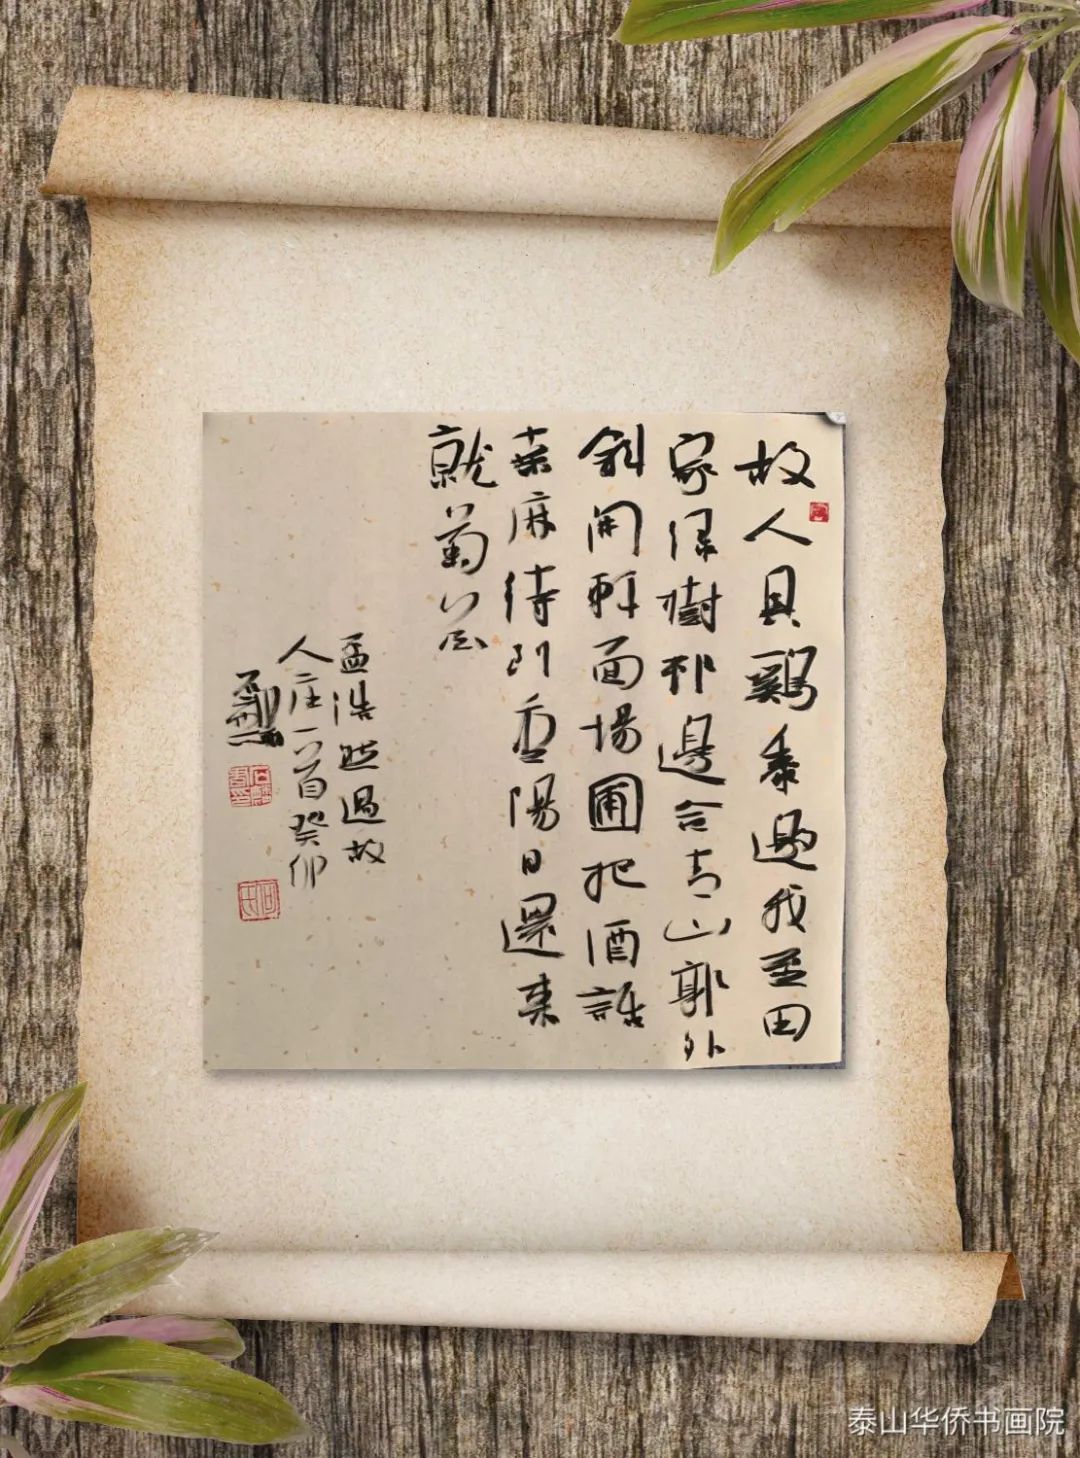 故人具鷄黍邀我至田
家綠樹邨邊合青山郭外
斜開軒面場圃把酒話
桑麻待到重陽日還來
就菊花
孟浩然過故
人庄一首癸卯
泰山华侨书画院